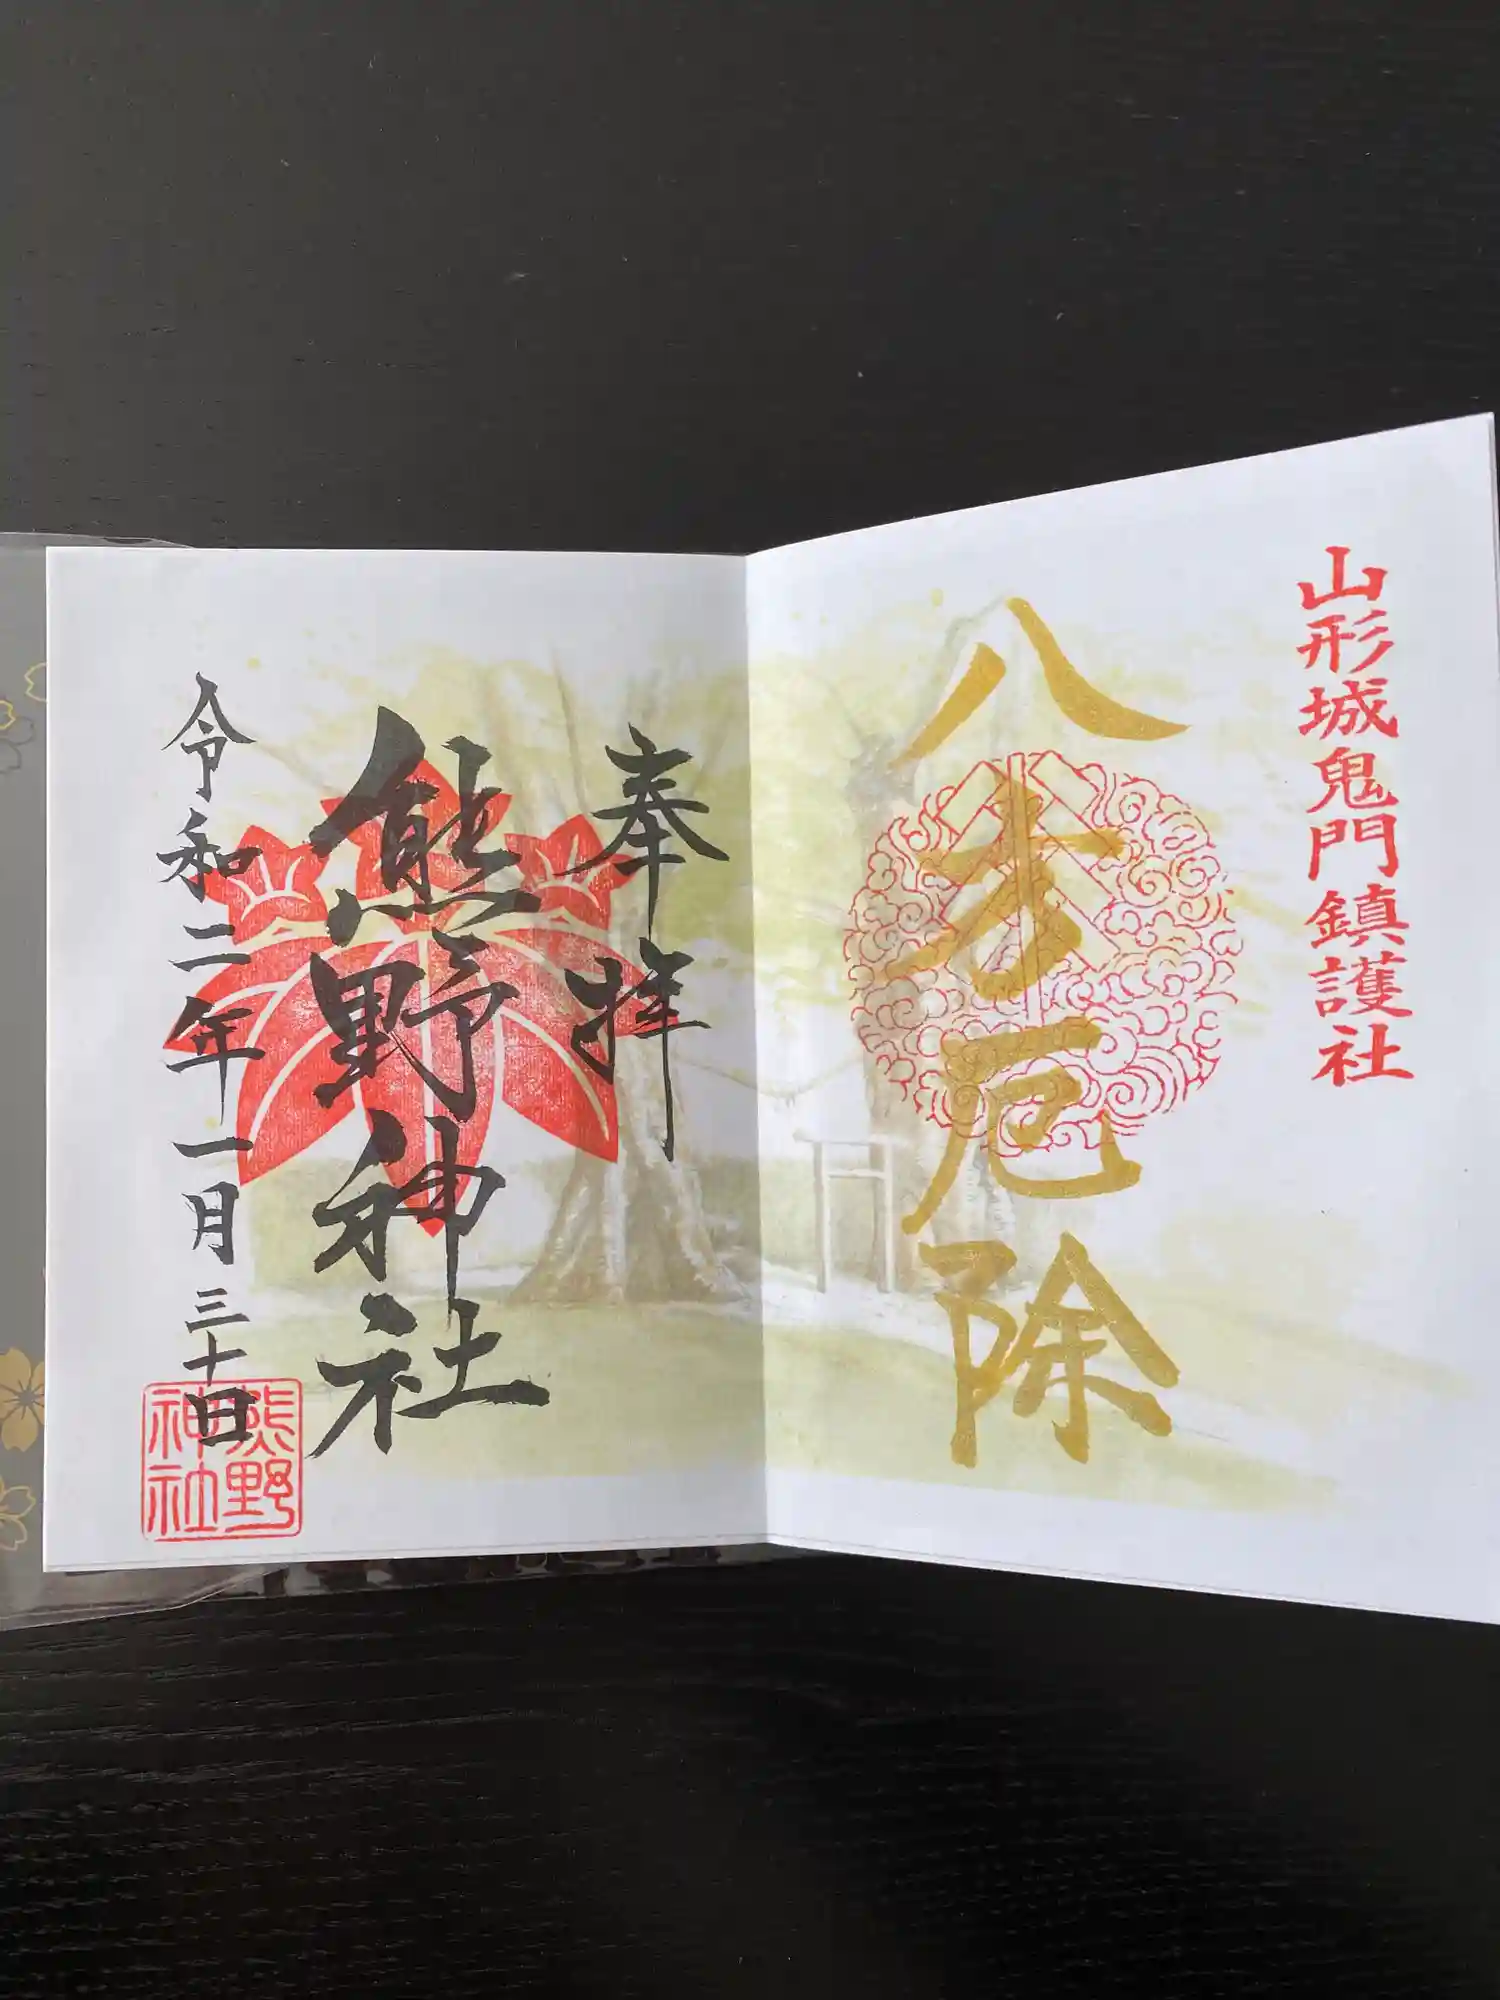 山形城鬼門鎮護社
八方厄除
奉拝
熊野神社
令和二年一月三十日
熊野
神社